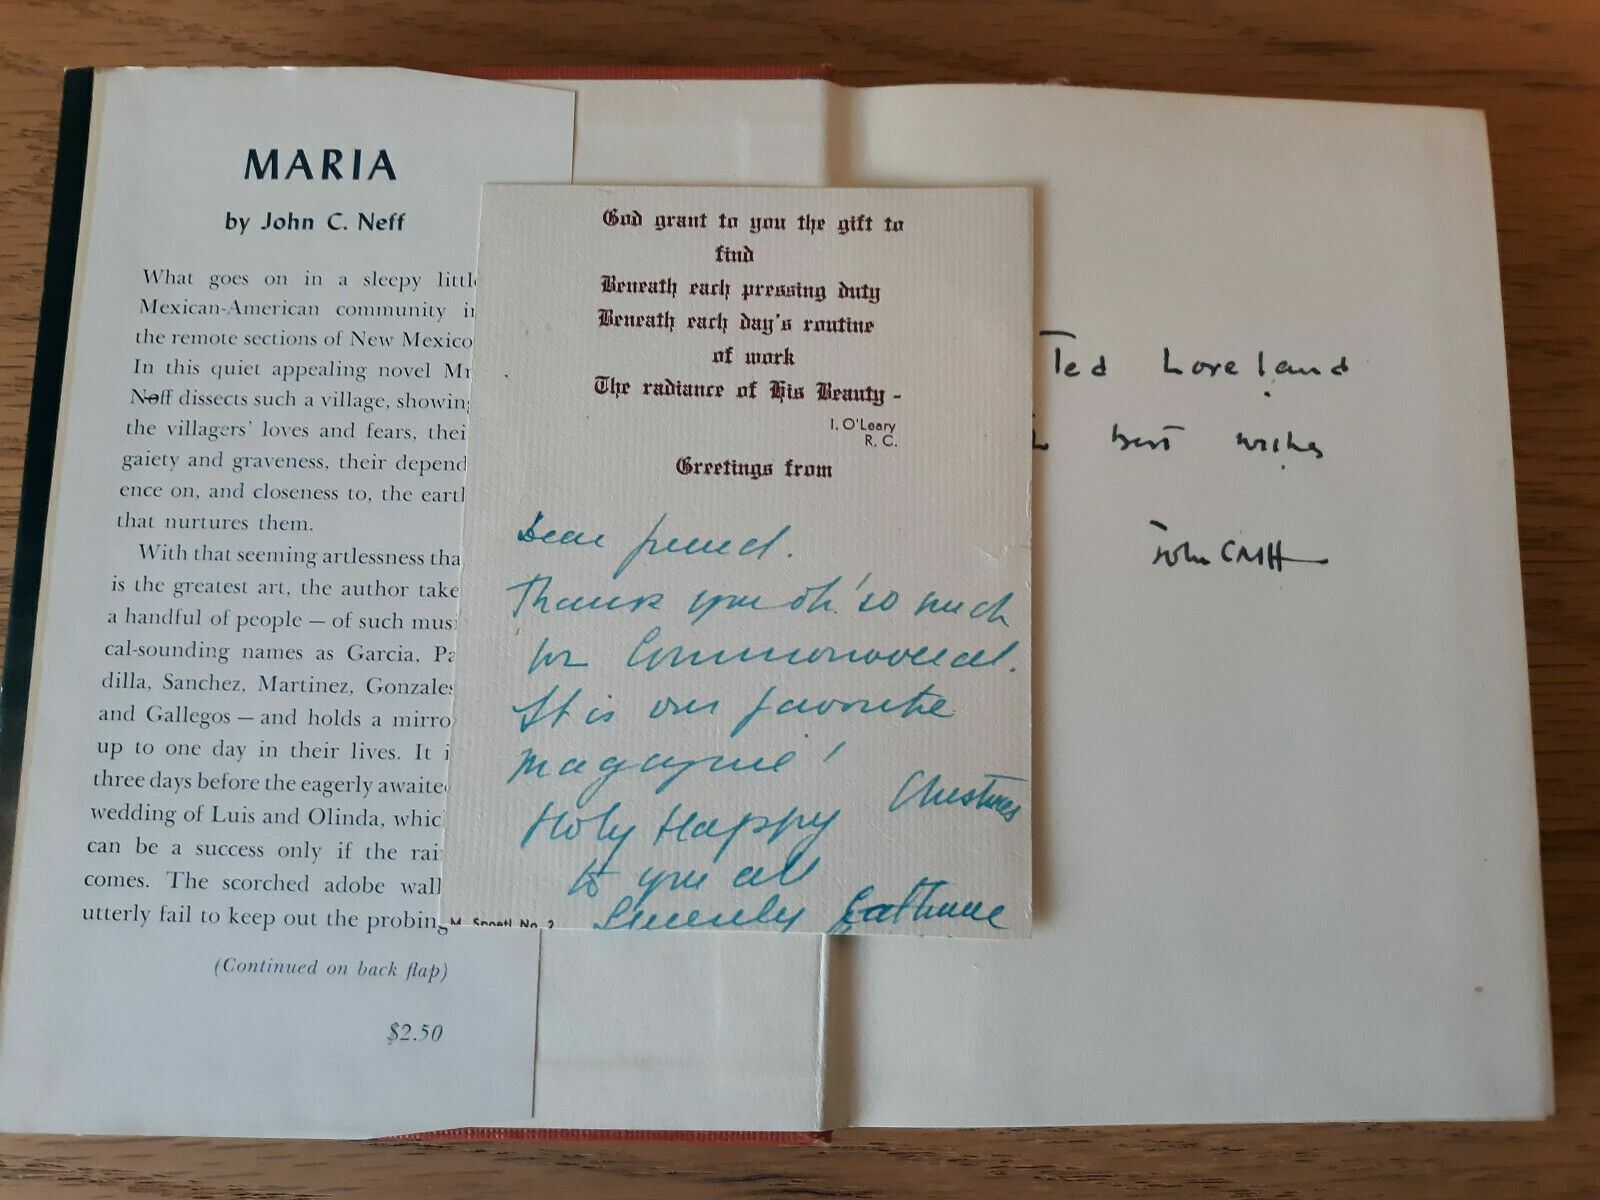 MARIA
by John C. Neff
What goes on in a sleepy littl
Mexican-American community i
the remote sections of New Mexico
In this quiet appealing novel Mr
Neff dissects such a village, showin
the villagers' loves and fears, thei
gaiety and graveness, their depend
ence on, and closeness to, the eart
that nurtures them.
With that seeming artlessness tha
is the greatest art, the author take
a handful of people — of such mus
cal-sounding names as Garcia, Pa
dilla, Sanchez, Martinez, Gonzales
and Gallegos — and holds a mirro
up to one day in their lives. It i
three days before the eagerly awaite
wedding of Luis and Olinda, whic
can be a success only if the rai
comes. The scorched adobe wall
utterly fail to keep out the probing
(Continued on back flap)
$2.50
God grant to you the gift to
find
Beneath each pressing duty
Beneath each day's routine
of work
The radiance of His Beauty -
I. O'Leary
R. C.
Greetings from
Dear friend.
Thank you oh! so much
for Commonweal.
It is our favorite
magazine!
Holy Happy Christmas
to you all
Sincerely Catherine
M. Spoetl No. 2
Ted Loveland
best wishes
John